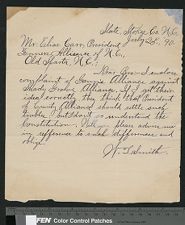 State, Moore Co. N.C.
July 2d, 90.
Mr. Elias Carr, President
Farmers Alliance of N.C.
Old Sparta, N.C.
Dear Sir—I enclose
complaint of Fannie's Alliance against
Shady Grove Alliance. If I get their
idea correctly they think that President
of County Alliance should settle such
trouble. But I don't so understand the
Constitution. Will you please advise me
in reference to such differences and
oblige.
W. T. Smith
FEN Color Control Patches